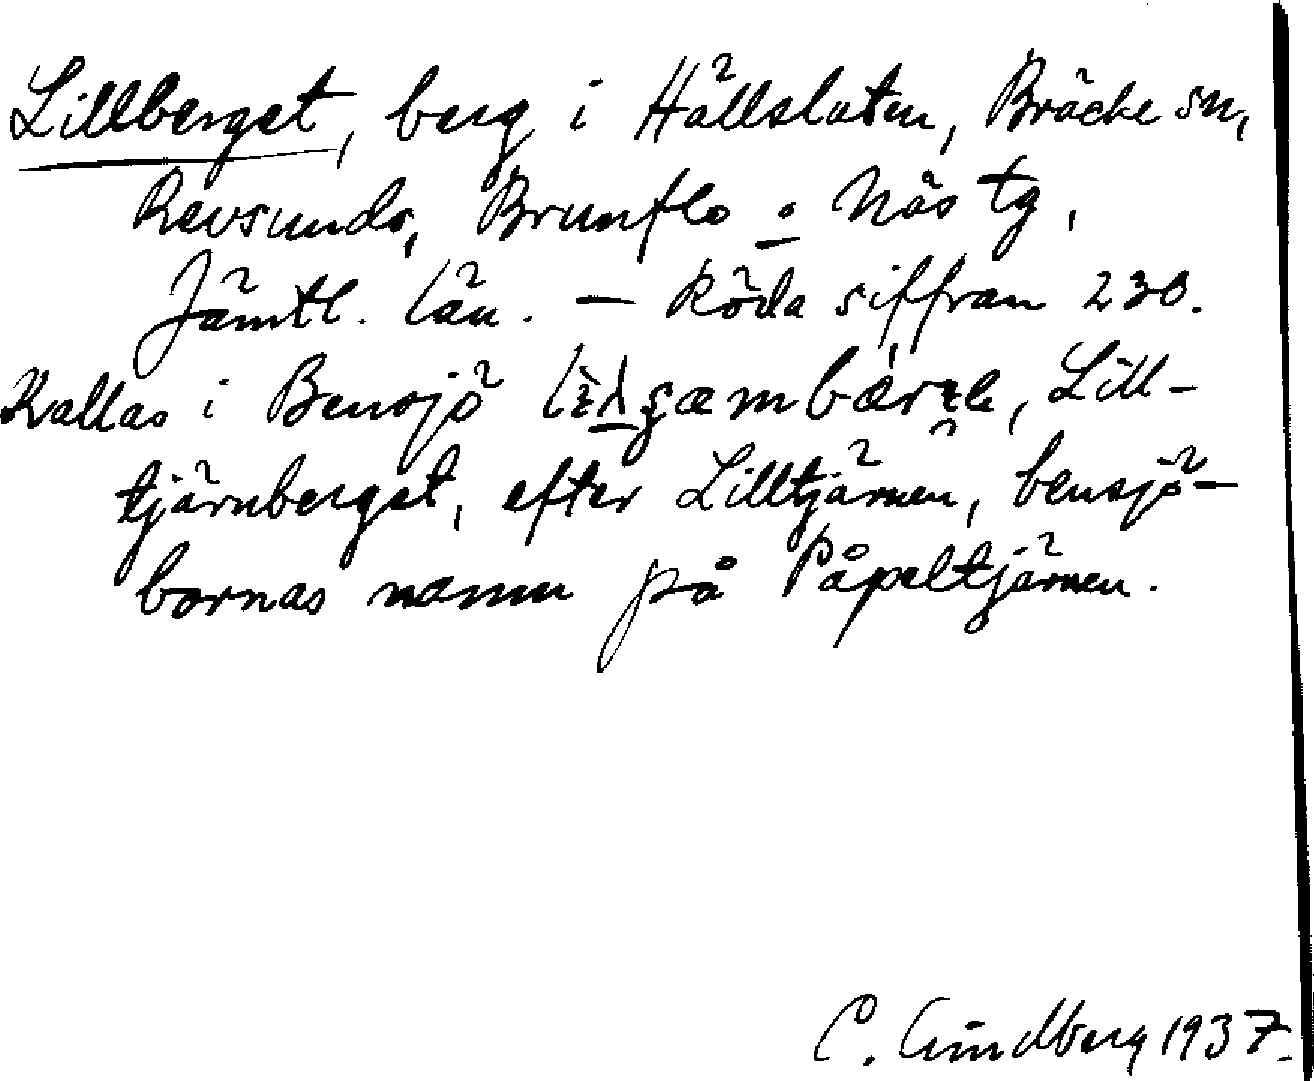 Lillberget, berg i Hällsluten, Bräcke sn,
Revsunds, Brunflo o Näs tg,
Jämtl. län. — Röda siffran 230.
Kallas i Bensjö Lill-
tjärnberget, efter Lilltjärnen, bensjö-
bornas namn på Påpeltjärnen.
C. Lindberg 1937.